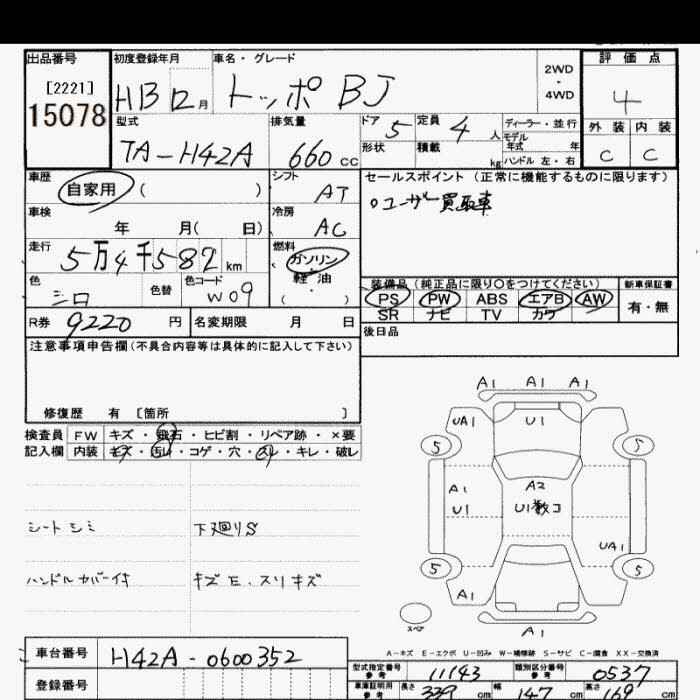 出品番号 初度登録年月 車名・グレード 評価点
[2221]
15078
H13 12月 トッポ BJ 2WD・4WD 4
型式 排気量 ドア 5 定員 4人 ディーラー・並行 外装 内装
TA-H42A 660cc 形状 積載 kg モデル年式 年 ハンドル 左・右 C C
車歴 自家用 ( ) シフト AT セールスポイント (正常に機能するものに限ります)
○ユーザー買取車
車検 年 月( 日) 冷房 AC
走行 5万4千582km 燃料 ガソリン・軽・油 ( )
色 シロ 色替 色コード W09 装備品 (純正品に限り○をつけてください) 新車保証書
PS PW ABS エアB AW 有・無
SR ナビ TV カワ
R券 9220円 名変期限 月 日 後日品
注意事項申告欄(不具合内容等は具体的に記入して下さい)
修復歴 有 [箇所 ]
検査員 FW キズ・飛石・ヒビ割・リペア跡・×要
記入欄 内装 キズ・汚レ・コゲ・穴・スレ・キレ・破レ
A1 A1 A1
UA1 U1
5 5
A1 A2
U1 U1数コ
UA1
5 5
A1
スペア A1
シートシミ 下廻りS
ハンドルカバー付 キズE、スリキズ
A-キズ E-エクボ U-凹み W-補修跡 S-サビ C-腐食 XX-交換済
車台番号 H42A-0600352
型式指定番号 参考 11143 類別区分番号 参考 0537
登録番号 車庫証明用 参考 長さ 339cm 幅 147cm 高さ 169cm